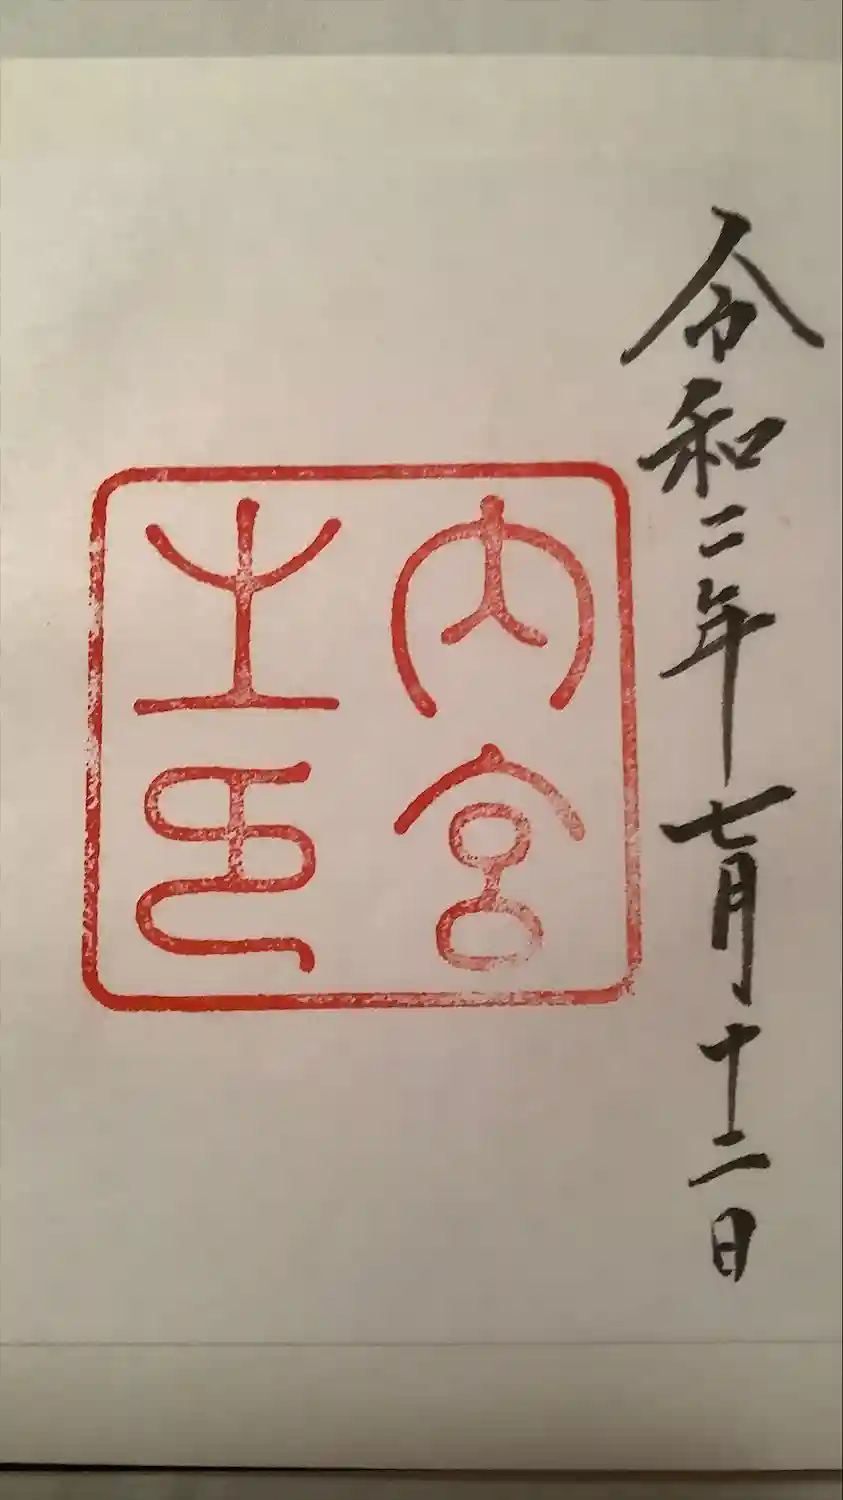 令和二年七月十二日
内宮
之印